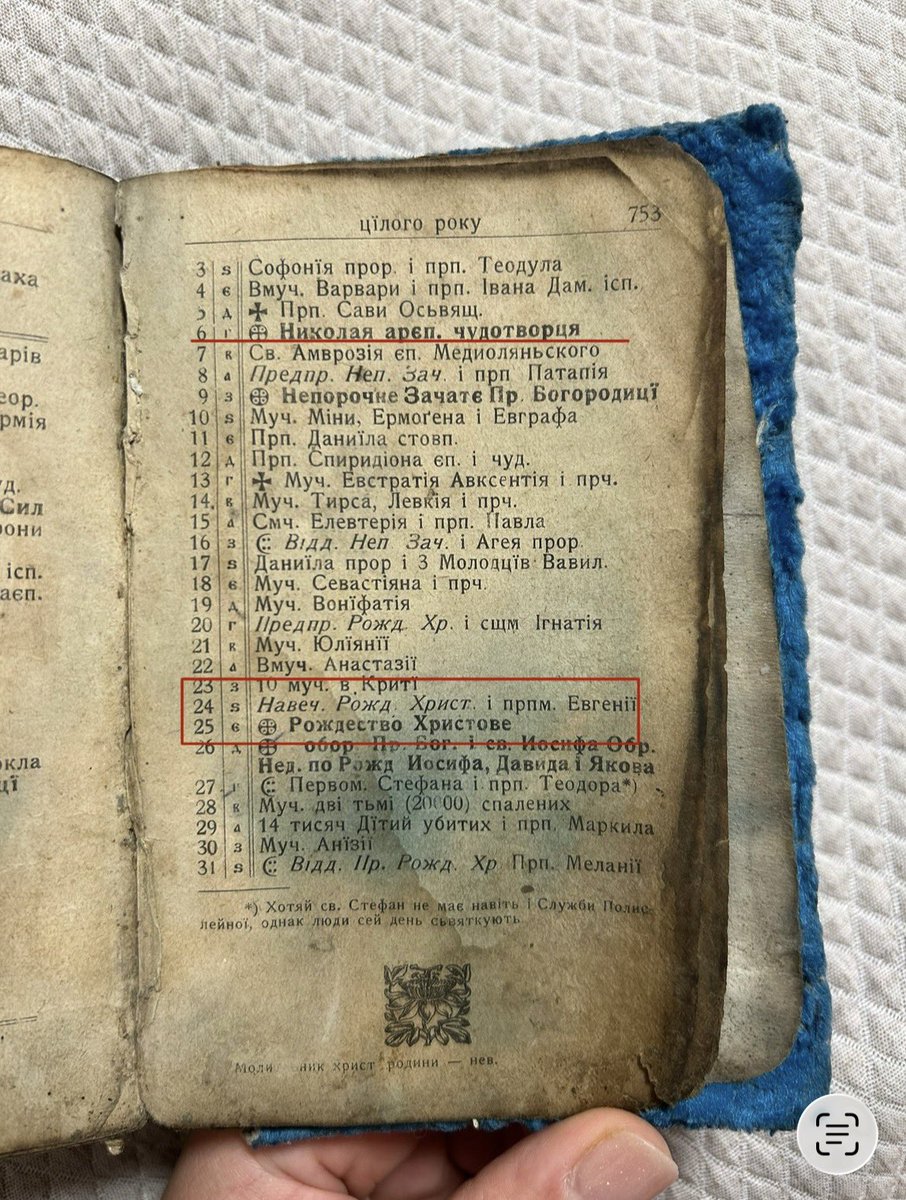 аха
арів
еор.
рмія
уд.
Сил
рони
ісп.
аєп.
окла
ці
цїлого року 753
3 ѕ Софонїя прор. і прп. Теодула
4 є Вмуч. Варвари і прп. Івана Дам. ісп.
5 д ✠ Прп. Сави Осьвящ.
6 г ⊕ Николая арєп. чудотворця
7 к Св. Амврозія єп. Медиоляньского
8 д Предпр. Неп. Зач. і прп Патапія
9 з ⊕ Непорочне Зачатє Пр. Богородицї
10 ѕ Муч. Міни, Ермоґена і Евграфа
11 є Прп. Даниїла стовп.
12 д Прп. Спиридіона єп. і чуд.
13 г ✠ Муч. Евстратія Авксентія і прч.
14 к Муч. Тирса, Левкія і прч.
15 д Смч. Елевтерія і прп. Павла
16 з Відд. Неп Зач. і Агея прор.
17 ѕ Даниїла прор і 3 Молодцїв Вавил.
18 є Муч. Севастіяна і прч.
19 д Муч. Вонїфатія
20 г Предпр. Рожд. Хр. і сщм Ігнатія
21 к Муч. Юлїянїї
22 д Вмуч. Анастазії
23 з 10 муч. в Критї
24 ѕ Навеч. Рожд. Христ. і прпм. Евгенїї
25 є ⊕ Рождество Христове
26 д ⊕ обор Пр. Бог. і св. Иосифа Обр.
Нед. по Рожд Иосифа, Давида і Якова
27 г Первом. Стефана і прп. Теодора*)
28 к Муч. дві тьмі (20000) спалених
29 д 14 тисяч Дїтий убитих і прп. Маркила
30 з Муч. Анїзії
31 ѕ Відд. Пр. Рожд. Хр Прп. Меланїї
*) Хотяй св. Стефан не має навіть і Служби Полиє-
лейної, однак люди сей день сьвяткують
Моли ник христ родини — нев.